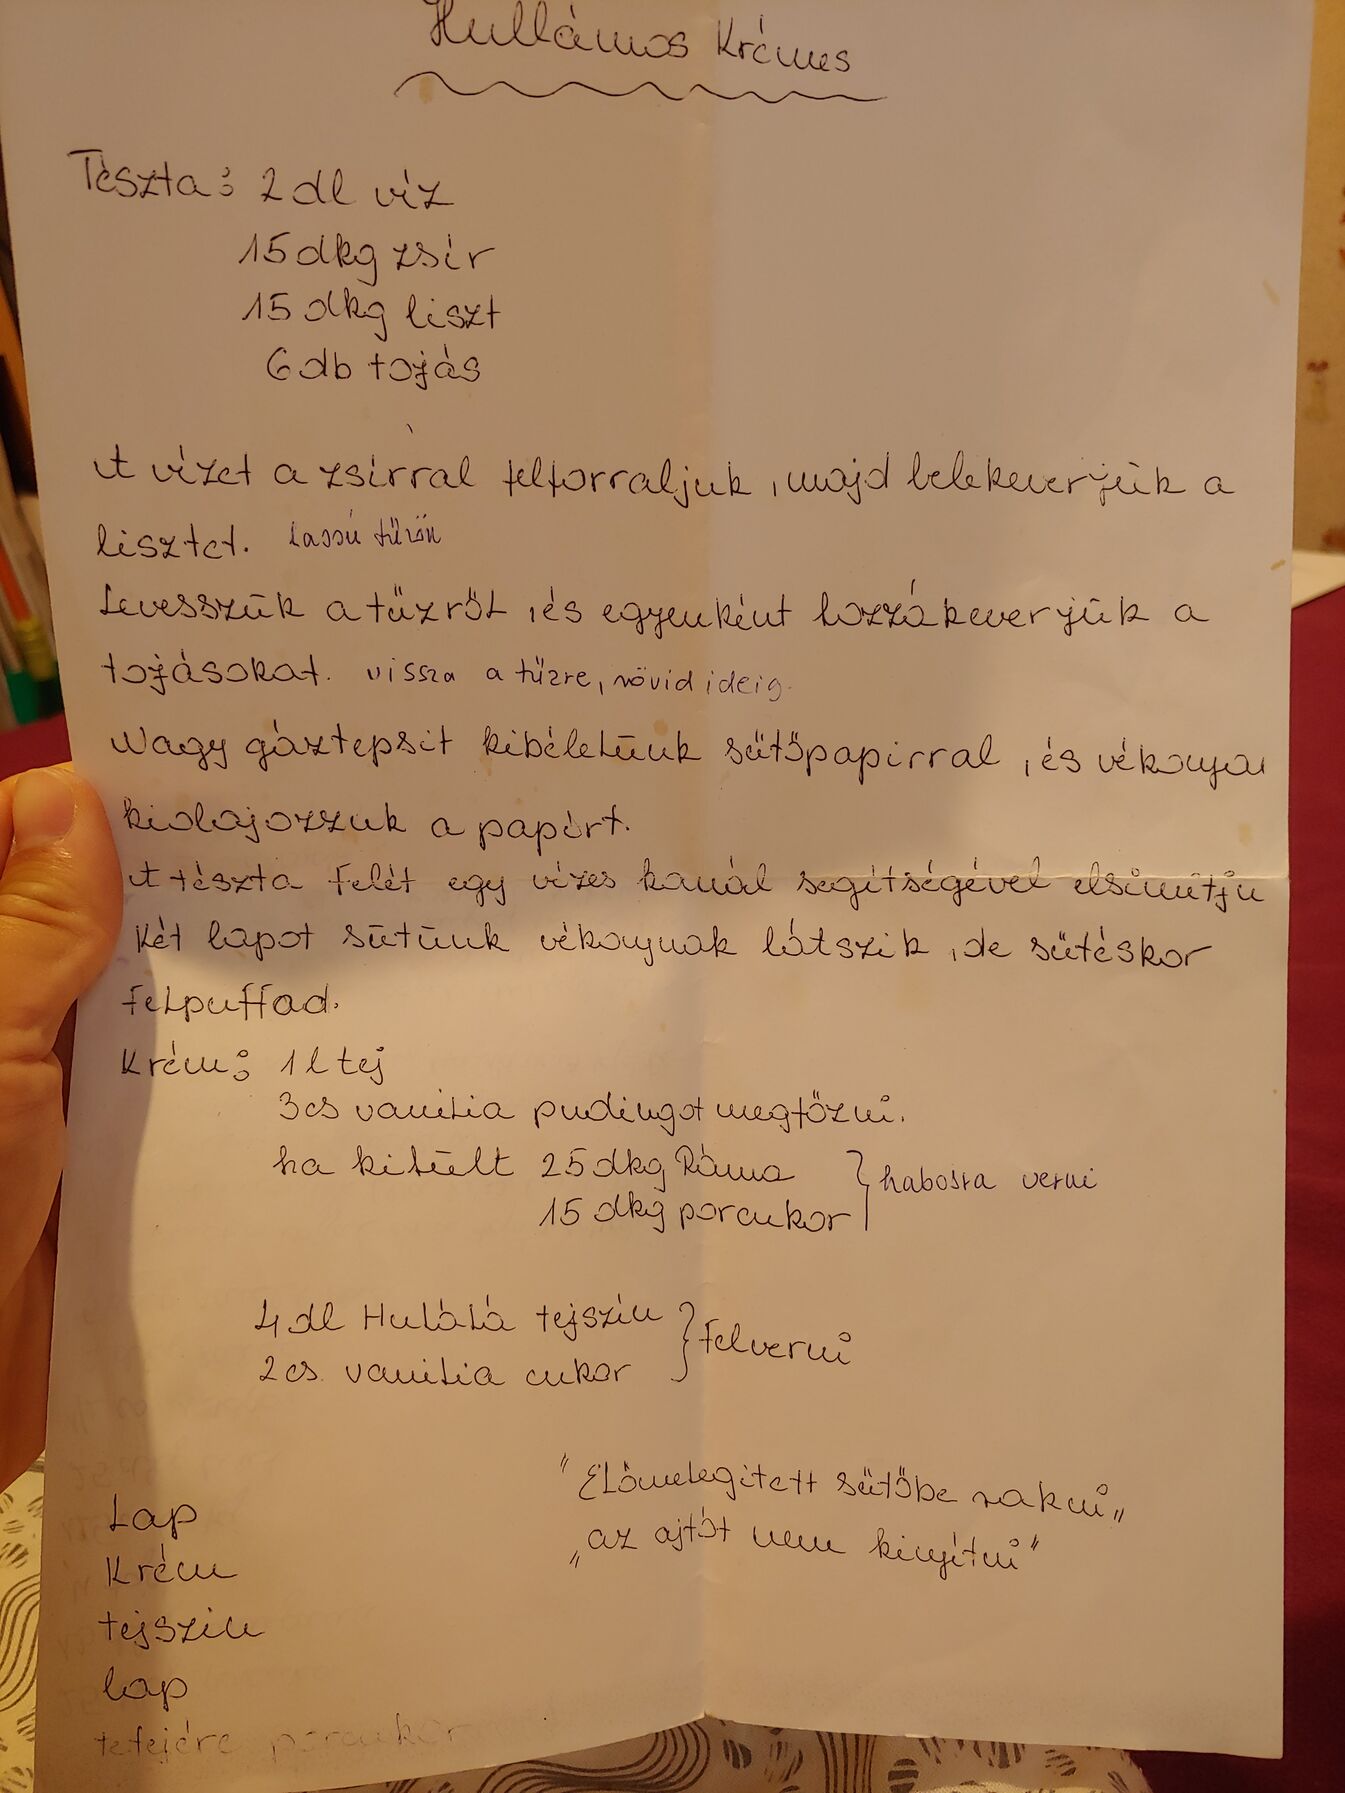 Hullámos Krémes
Tészta: 2 dl víz
15 dkg zsír
15 dkg liszt
6 db tojás
A vizet a zsírral felforraljuk, majd belekeverjük a
lisztet. lassú tűzön
Levesszük a tűzről, és egyenként hozzákeverjük a
tojásokat. vissza a tűzre, rövid ideig.
Nagy gáztepsit kibélelünk sütőpapírral, és vékonyan
kiolajozzuk a papírt.
A tészta felét egy vizes kanál segítségével elsimítju
Két lapot sütünk vékonynak látszik, de sütéskor
felpuffad.
Krém: 1 l tej
3 cs vanilia pudingot megfőzni.
ha kihült 25 dkg Ráma } habosra verni
15 dkg porcukor
4 dl Hulálá tejszín } felverni
2 cs. vanilia cukor
"Előmelegített sütőbe rakni"
Lap
"az ajtót nem kinyítni"
Krém
tejszín
lap
tetejére porcukor